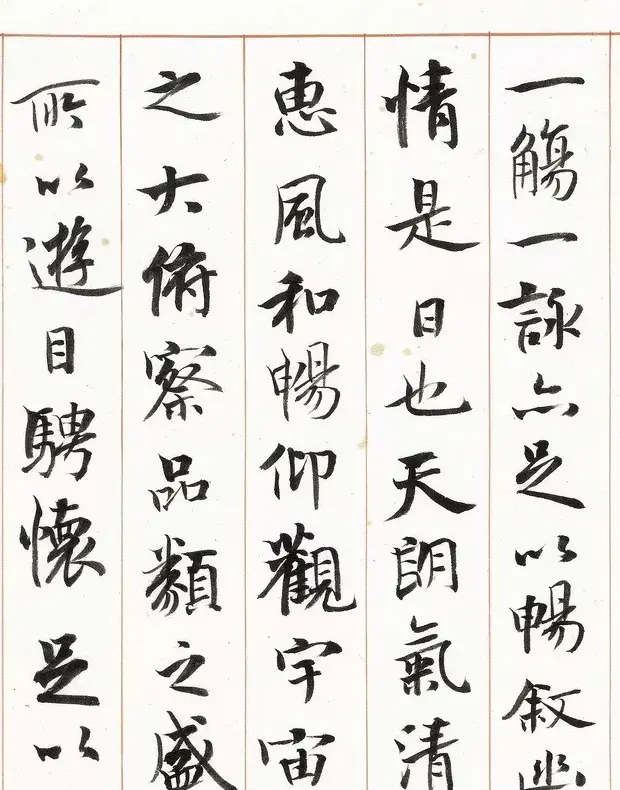 一觴一詠亦足以暢叙幽
情是日也天朗氣清
惠風和暢仰觀宇宙
之大俯察品類之盛
所以遊目騁懷足以